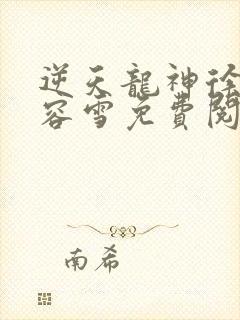 逆天龍神徐
容雪免費閱
南希